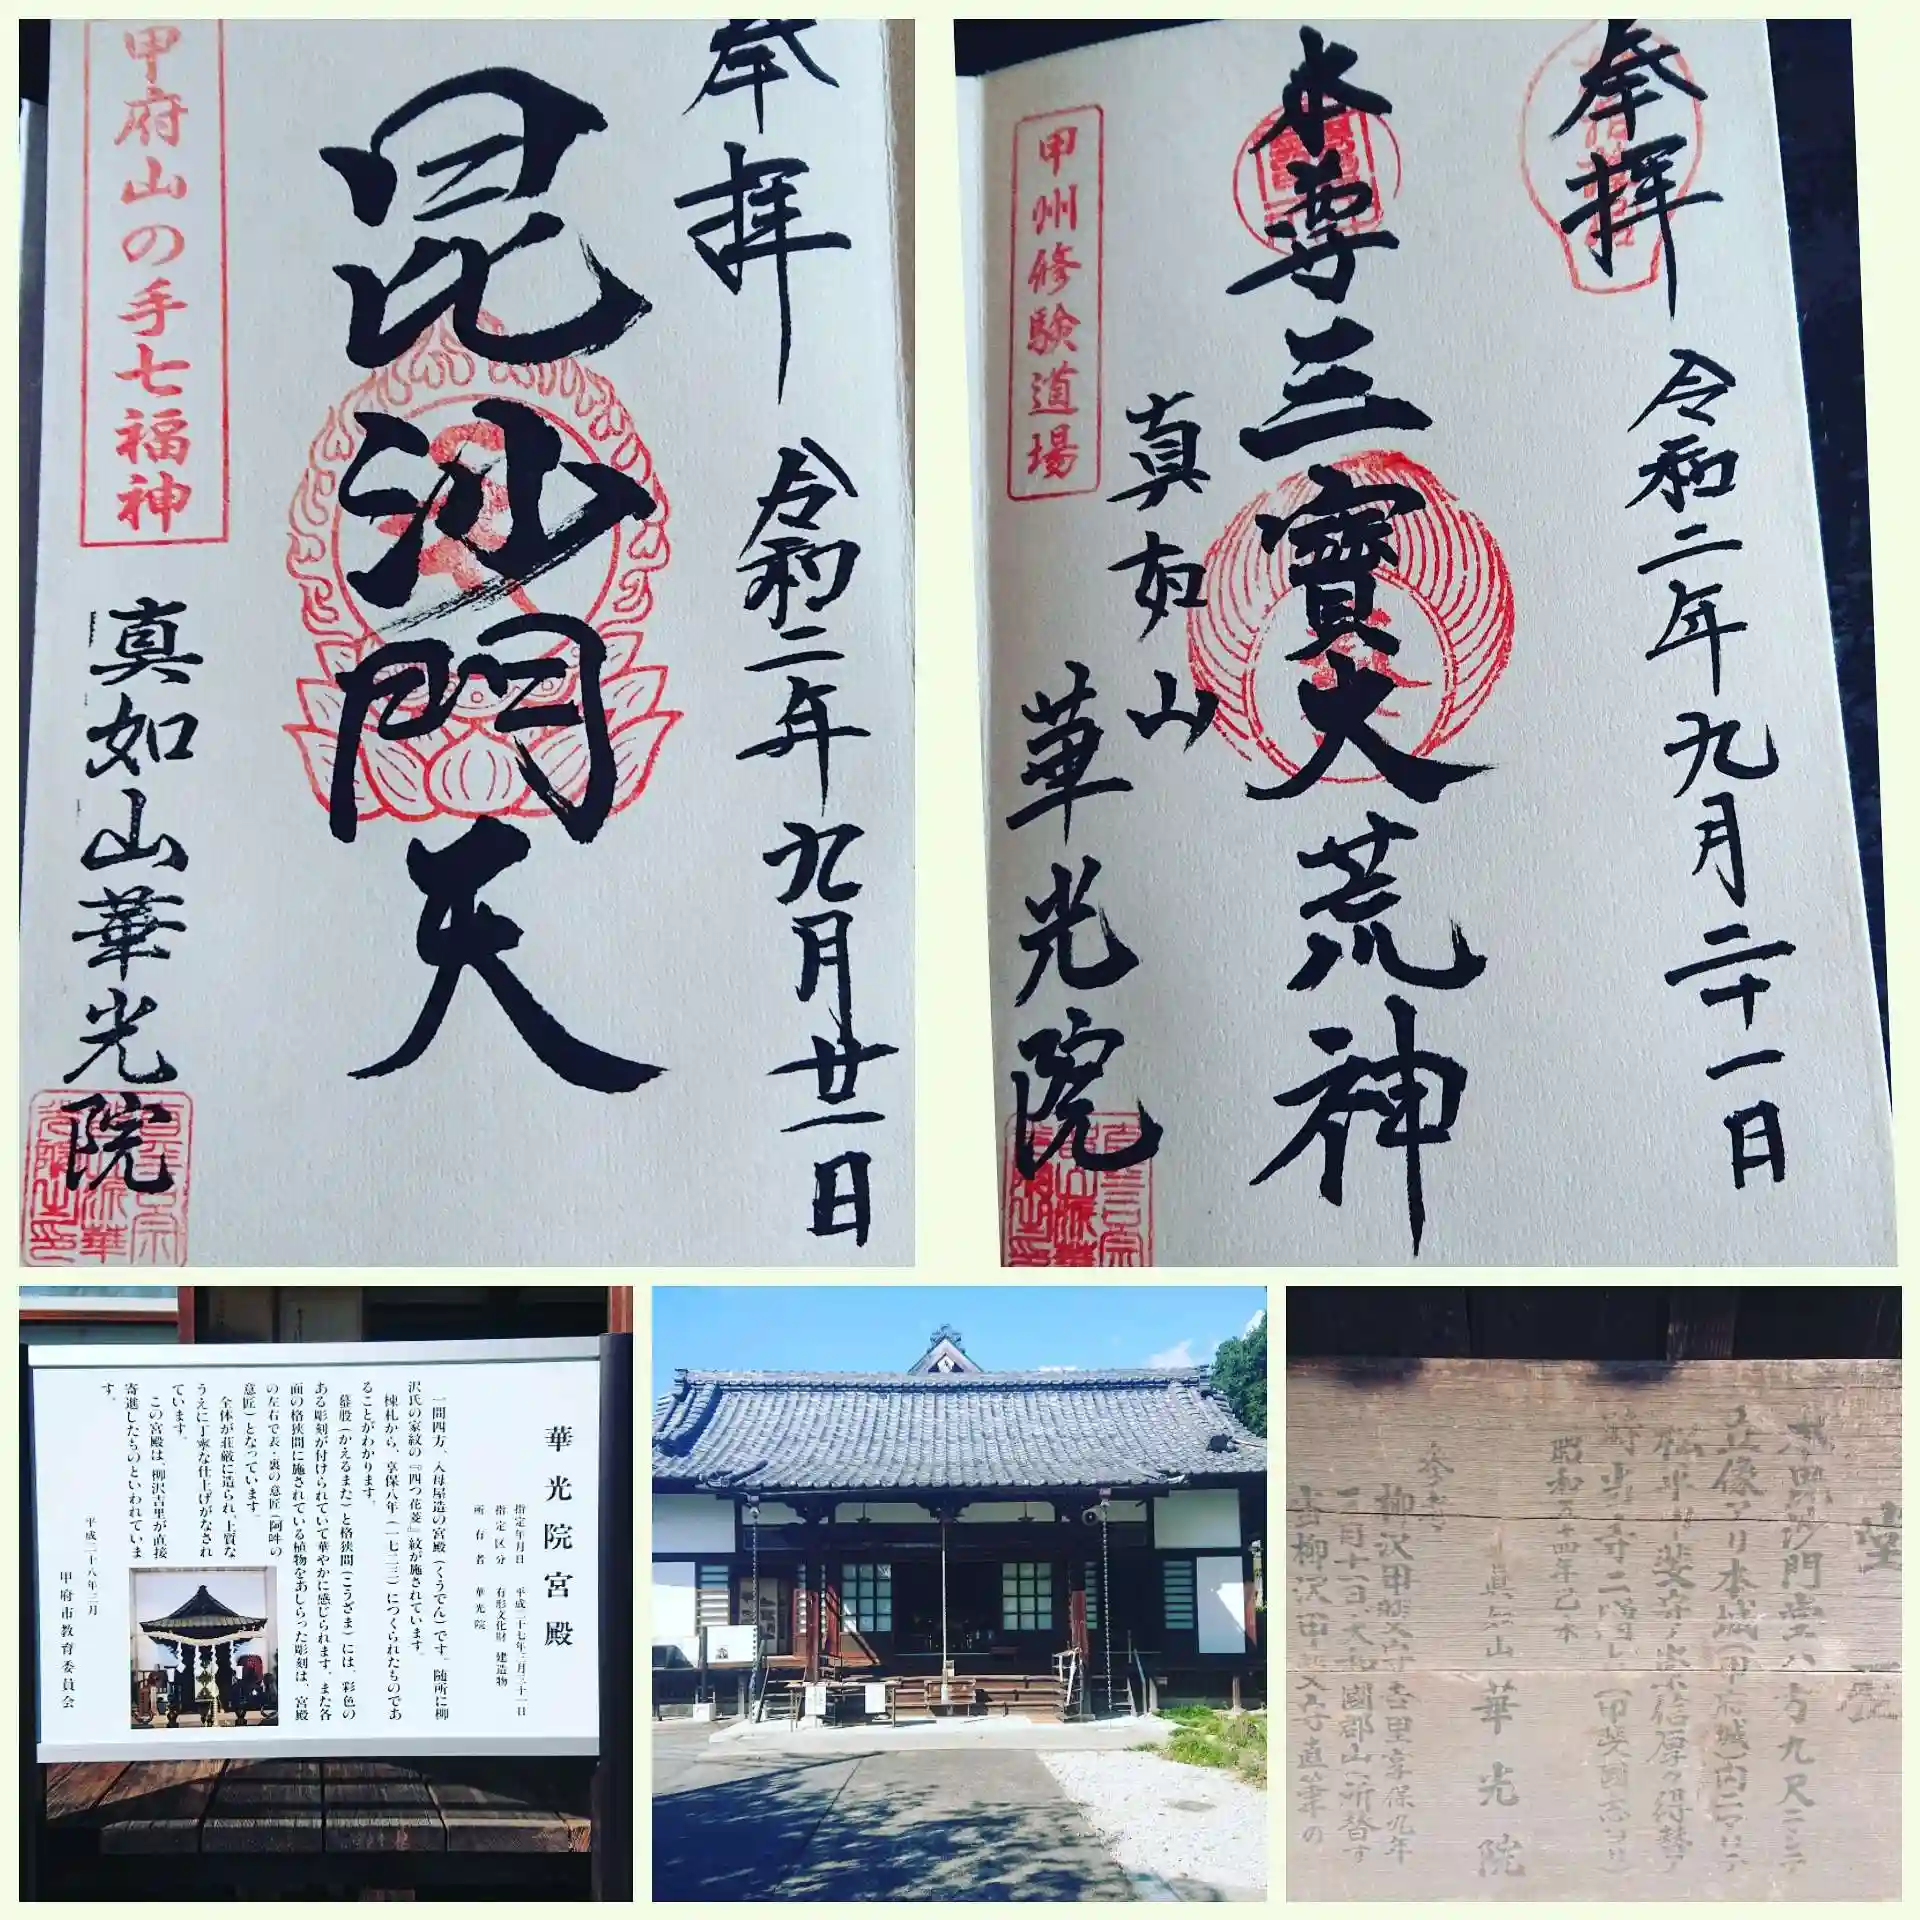 奉拝
令和二年九月廿一日
毘沙門天
甲府山の手七福神
真如山華光院
奉拝
令和二年九月二十一日
本尊三寶大荒神
甲州修験道場
真如山
華光院
華光院宮殿
指定年月日 平成二十七年三月三十一日
指定区分 有形文化財 建造物
所有者 華光院
一間四方、入母屋造の宮殿(くうでん)です。随所に柳
沢氏の家紋の『四つ花菱』紋が施されています。
棟札から、享保八年(一七二三)につくられたものであ
ることがわかります。
蟇股(かえるまた)と格狭間(こうざま)には、彩色の
ある彫刻が付けられていて華やかに感じられます。また各
面の格狭間に施されている植物をあしらった彫刻は、宮殿
の左右で表・裏の意匠(阿吽の
意匠)となっています。
全体が荘厳に造られ、上質な
うえに丁寧な仕上げがなされ
ています。
この宮殿は、柳沢吉里が直接
寄進したものといわれていま
す。
平成二十八年三月
甲府市教育委員会
堂
毘沙門堂ハ方九尺ニシテ
立像アリ本城(甲府城)内ニアリテ
昭和五十四年乙未
真如山 華光院
柳沢甲斐守吉里享保九年